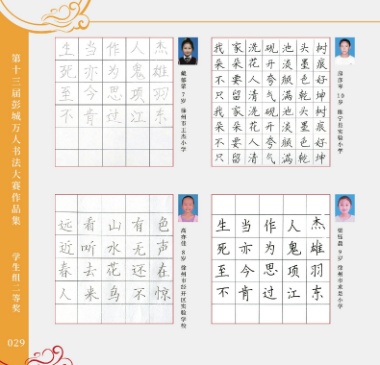 第十三届彭城万人书法大赛作品集
学生组二等奖
029
生当作人杰
死亦为鬼雄
至今思项羽
不肯过江东
7岁 徐州市王杰小学
我家洗砚池头树
朵朵花开淡墨痕
不要人夸颜色好
只留清气满乾坤
我家洗砚池头树
朵朵花开淡墨痕
不要人夸颜色好
只留清气满乾坤
10岁 睢宁县实验小学
远看山有色
近听水无声
春去花还在
人来鸟不惊
8岁 徐州市经开区实验学校
生当作人杰
死亦为鬼雄
至今思项羽
不肯过江东
9岁 徐州市求是小学